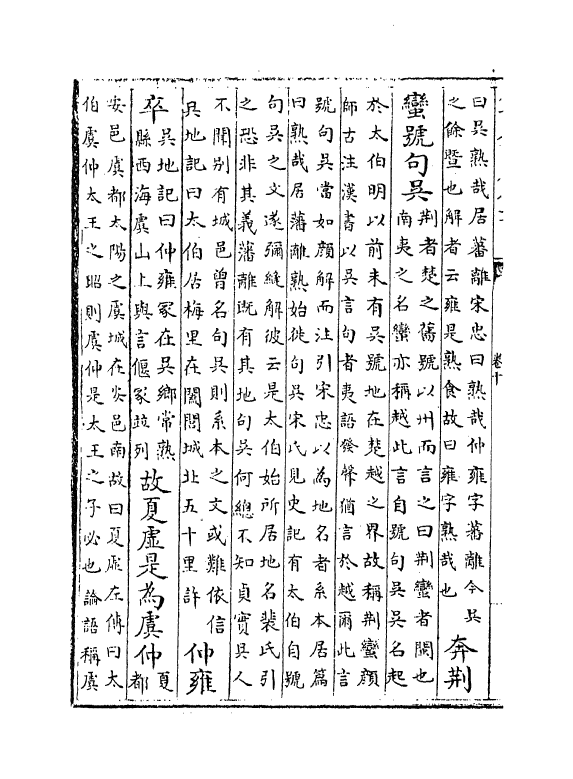 曰吳熟哉居蕃離宋忠曰熟哉仲雍字蕃離今吳
之餘暨也解者云雍是熟食故曰雍字熟哉也
奔荆
蠻號句吳
荆者楚之舊號以州而言之曰荆蠻者閩也
南夷之名蠻亦稱越此言自號句吳吳名起
於太伯明以前未有吳號地在楚越之界故稱荆蠻顔
師古注漢書以吳言句者夷語發聲猶言於越爾此言
號句吳當如顔解而注引宋忠以為地名者系本居篇
曰熟哉居藩離熟始徙句吳宋氏見史記有太伯自號
句吳之文遂彌縫解彼云是太伯始所居地名裴氏引
之恐非其義藩離既有其地句吳何總不知貞實吳人
不聞别有城邑曾名句吳則系本之文或難依信
吳地記曰太伯居梅里在闔閭城北五十里許
仲雍
卒
吳地記曰仲雍冢在吳鄉常熟
縣西海虞山上與言偃冢竝列
故夏虛是為虞仲
夏
都
安邑虞都太陽之虞城在安邑南故曰夏虛左傳曰太
伯虞仲太王之昭則虞仲是太王之子必也論語稱虞
卷十